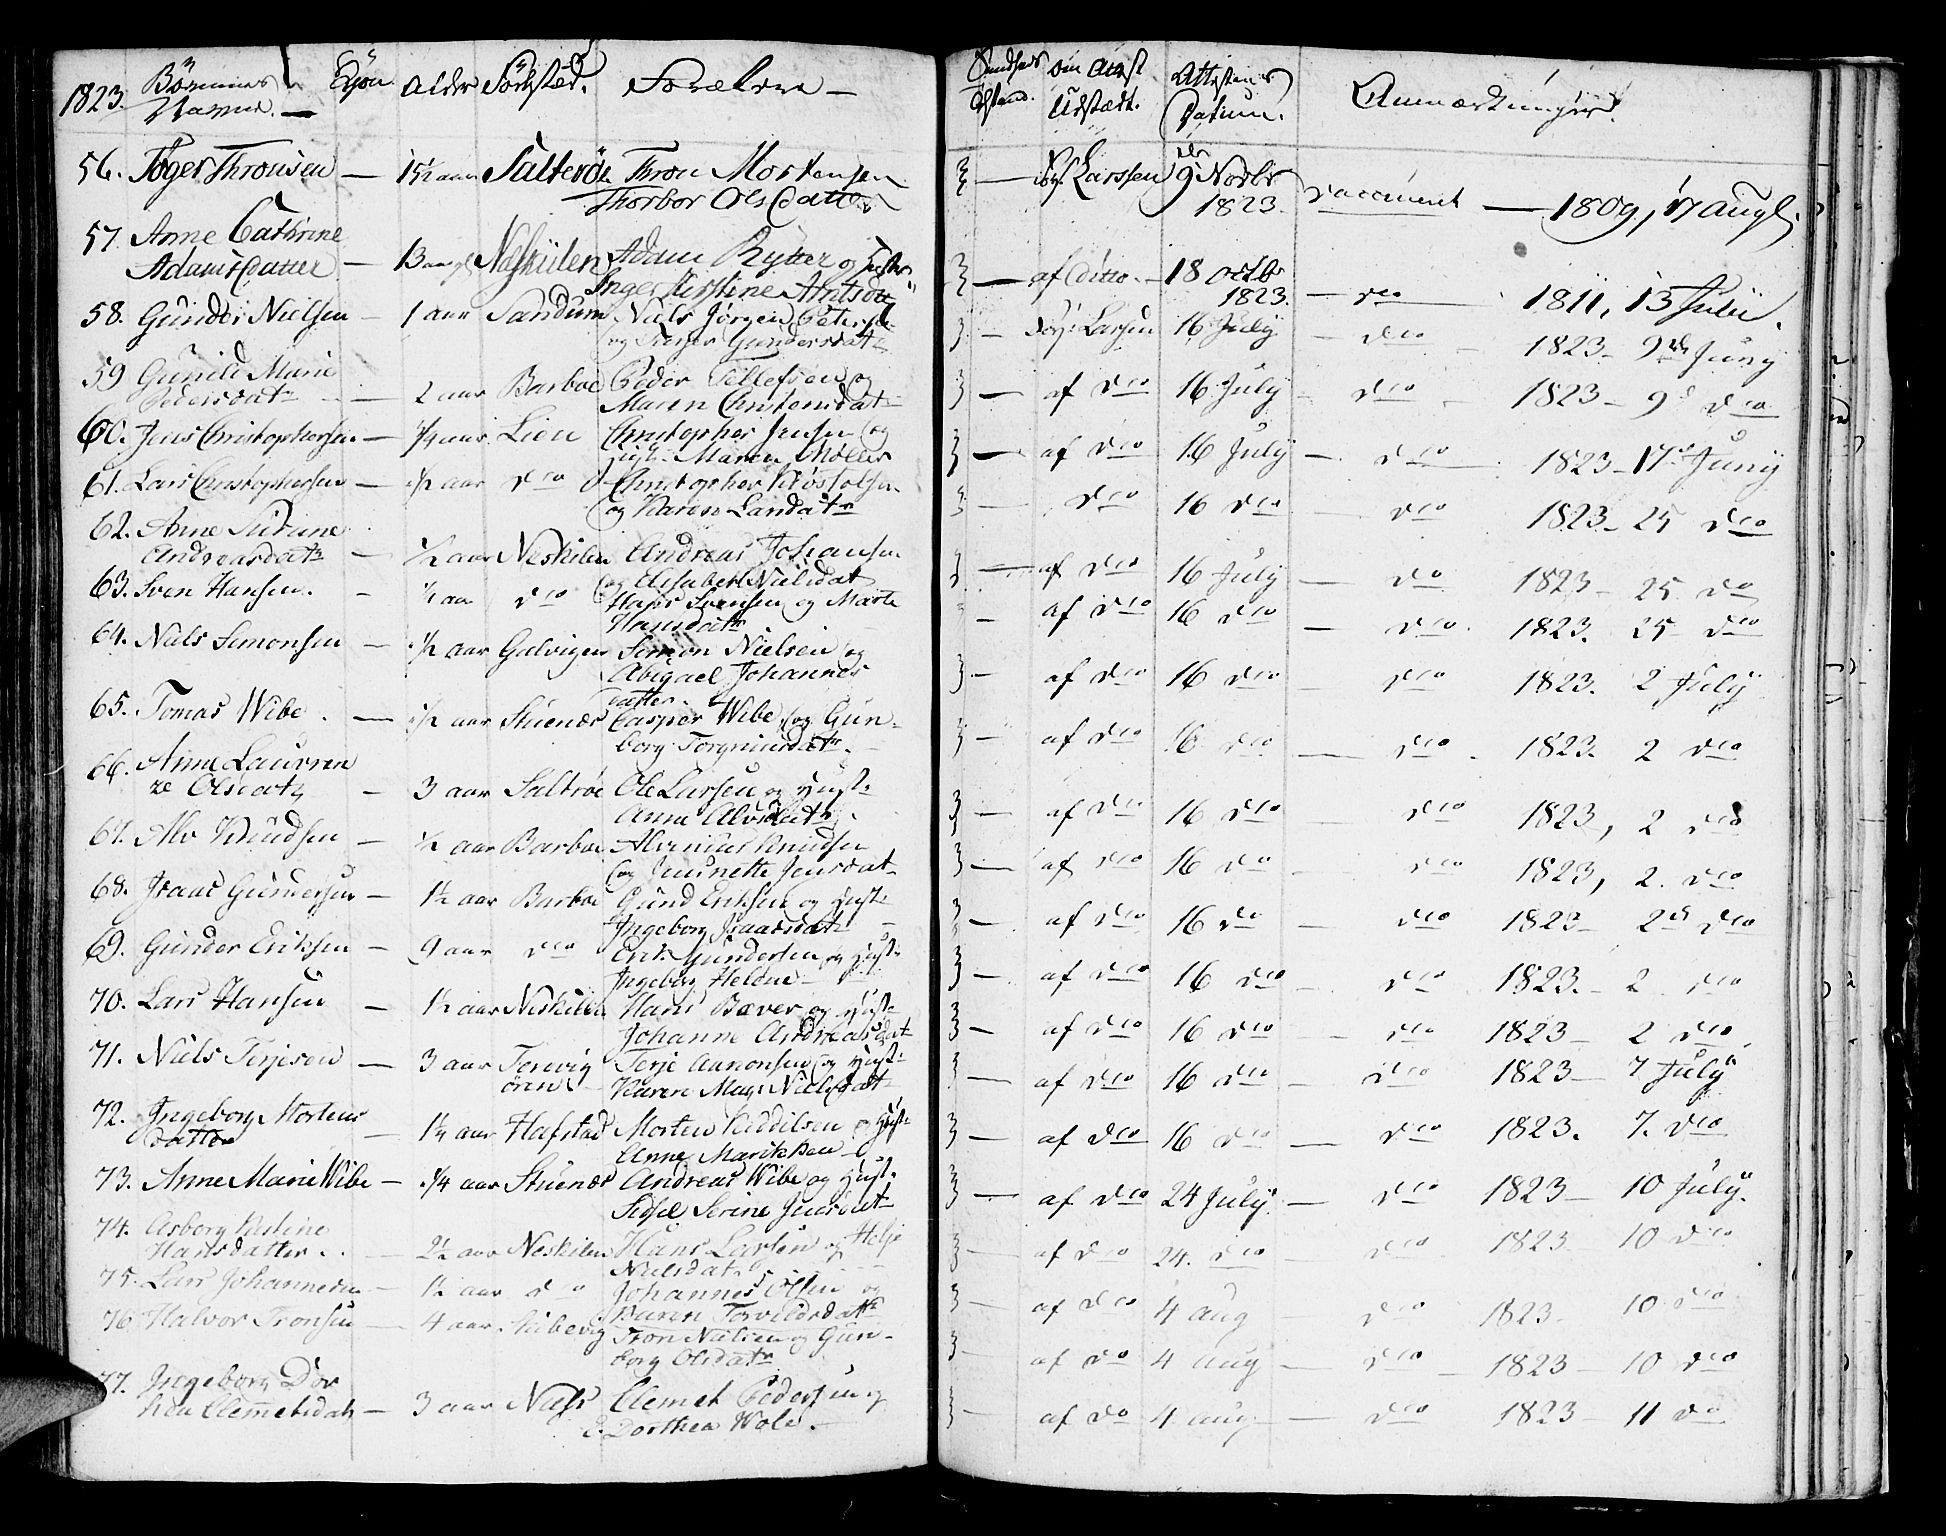 1823. Børnenes Navne. Kjøn Alder Fødested. Forældre
Sundheds tilstand. om Attest Udstædt. Attestens Datum. Anmærkninger.
56. Tøger Thronsen — 15½ aar Salterøe Thron Mortensen
Thorbor Olsdatter
3 — Larssen 9 Novbr 1823. vaccineret — 1809, 17 Augt.
57. Anne Cathrine
Adamsdatter — Neskilen Adam Rytter og
Inger Kirstine
3 — af Ditto — 18 octbr 1823. — dco 1811, 13 Julii.
58. Gunder Nielsen — 1 aar Sandum Niels Jørgen Peters
og Gundersdatr
3 — Larsen 16 July — dco 1823 — 9de Juny
59 Gunild Marie
Pedersdatr — 2 aar Barboe Peder Tellefsen og
Maren Christensdatr
3 — af dco 16 July dco 1823 — 9d dco
60. Jens Christophersen — ¼ aar Lien Christopher Jensen og
Maren Møller
3 — af dco 16 July — dco 1823 — 17d Juny
61. Lars Christophersen — ½ aar dco Christopher
og Karen Larsdatr
3 — dco 16 dco — dco 1823 — 25 dco
62. Anne
Andreasdatr — ½ aar Neskilen Andreas Johansen
og Elisabet Nielsdat
3 — af dco 16 July — do 1823 — 25 do
63. Sven Hansen. — dco Hans Svensen og Marte
Hansdatr
3 — af dco 16 dco — dco. 1823. 25 dco
64. Niels Simonsen — ½ aar Galvigen Simon Nielsen og
Abigael Johannes
datter.
3 — af dco 16 dco — dco 1823. 2 July
65. Tomas Wibe. — ½ aar Stuenæs Casper Wibe og Gun-
borg Torgriimsdatr.
3 — af dco 16 dco — dco 1823. 2 dco
66. Anne Lauren
ze Olsdatr — 3 aar Saltrøe Ole Larsen og Hust:
Anne Alvsdatr
3 — af dco 16 dco dco 1823, 2 dco
67. Alv Knudsen — ½ aar Barboe Knudsen
og Jensdatr
3 — af dco 16 dco — dco 1823, 2. dco
68. Isaac Gundersen — 1½ aar Barboe Gund Eriksen og Hust:
Ingeborg Isaacsdatr
3 — af dco 16 do — dco 1823 — 2d dco
69. Gunder Eriksen — 9 aar dco Erik Gundersen og Hust:
Ingeborg Helene —
3 — af dco 16 dco — dco 1823. — 2 dco
70. Lars Hansen — 1½ aar Neskilen Hans Bæver og Hust:
Johanne Andreasdat
3 — af dco 16 dco — dco 1823 — 2 dco
71. Niels Terjesen — 3 aar Terje Aanonsen og Hust:
Karen Nielsdat
3 — af dco 16 dco — dco 1823 — 7 July
72. Ingeborg Mortens
datter — aar Hafstad Morten Kiddilsen og Hust:
Anne
3 — af dco 16 dco — dco 1823. 7. dco
73. Anne Marie Wibe — ¾ aar Stuenæs Andreas Wibe og Hust.
Sidsel Serine Jensdat
3 — af dco 24 July — dco 1823 — 10 July.
74. Asborg Kistine
Hansdatter. — 2½ aar Neskilen Hans Larsen og Helje
Nielsdatr
3 — af dco 24. dco — dco 1823 — 10 dco
75. Lars Johannesen — 1½ aar dco Johannes Olsen og
Karen Torvildsdatr
3 — af dco 4 aug — dco 1823. 10 dco
76. Halvor Tronsen — 4 aar Skibevig Tron Nielsen og Gun-
borg Olsdatr
3 — af do 4 aug — dco 1823 — 10 dco
77. Ingeborg Dor
thea Clemetsdatr — 3 aar Næs Clemet Pedersen og
Dorthea Wole.
3 — af do 4 aug — dco 1823 — 11 do